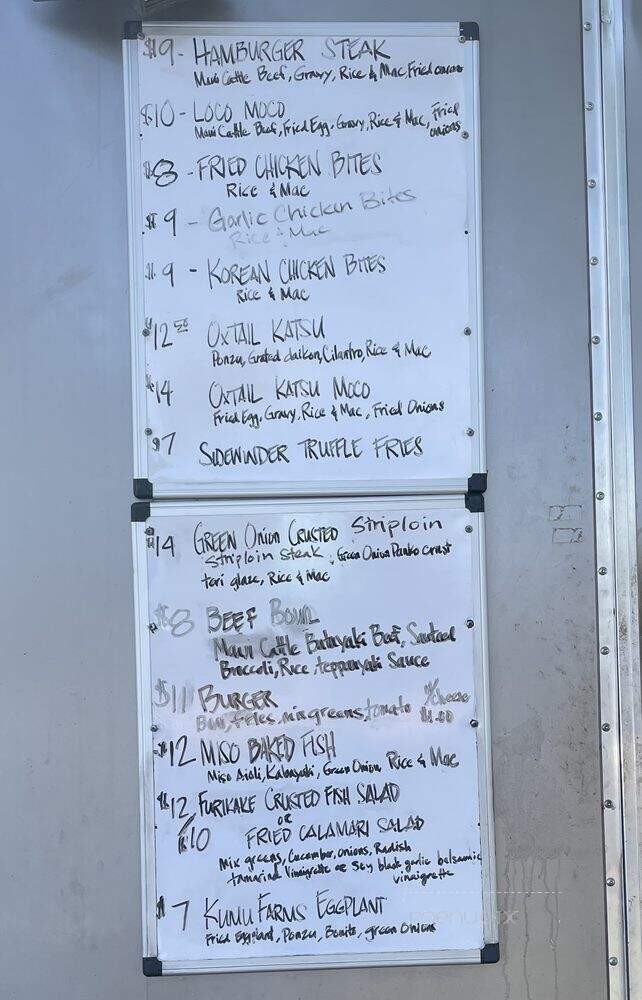 $9 - HAMBURGER STEAK
Maui Cattle Beef, Gravy, Rice & Mac, Fried onions
$10 - LOCO MOCO
Maui Cattle Beef, Fried Egg, Gravy, Rice & Mac, Fried onions
$8 - FRIED CHICKEN BITES
Rice & Mac
$9 - Garlic Chicken Bites
Rice & Mac
$9 - KOREAN CHICKEN BITES
Rice & Mac
$12 50 OXTAIL KATSU
Ponzu, Grated daikon, Cilantro, Rice & Mac
$14 OXTAIL KATSU MOCO
Fried Egg, Gravy, Rice & Mac, Fried Onions
$7 SIDEWINDER TRUFFLE FRIES
$14 GREEN Onion CRUSTED Striploin
Striploin Steak, Green Onion Panko crust
teri glaze, Rice & Mac
$8 BEEF BOWL
Maui Cattle Butayaki Beef, Sauteed
Broccoli, Rice, teppanyaki Sauce
$11 BURGER w/Cheese
Bun, fries, mix greens, tomato $1.00
$12 MISO BAKED FISH
Miso Aioli, Kabayaki, Green Onion, Rice & Mac
$12 FURIKAKE CRUSTED FISH SALAD
OR
$10 FRIED CALAMARI SALAD
Mix greens, Cucumber, onions, Radish
tamarind Vinaigrette or Soy black garlic balsamic
vinaigrette
$7 KUMU FARMS EGGPLANT
Fried Eggplant, Ponzu, Bonito, green Onions